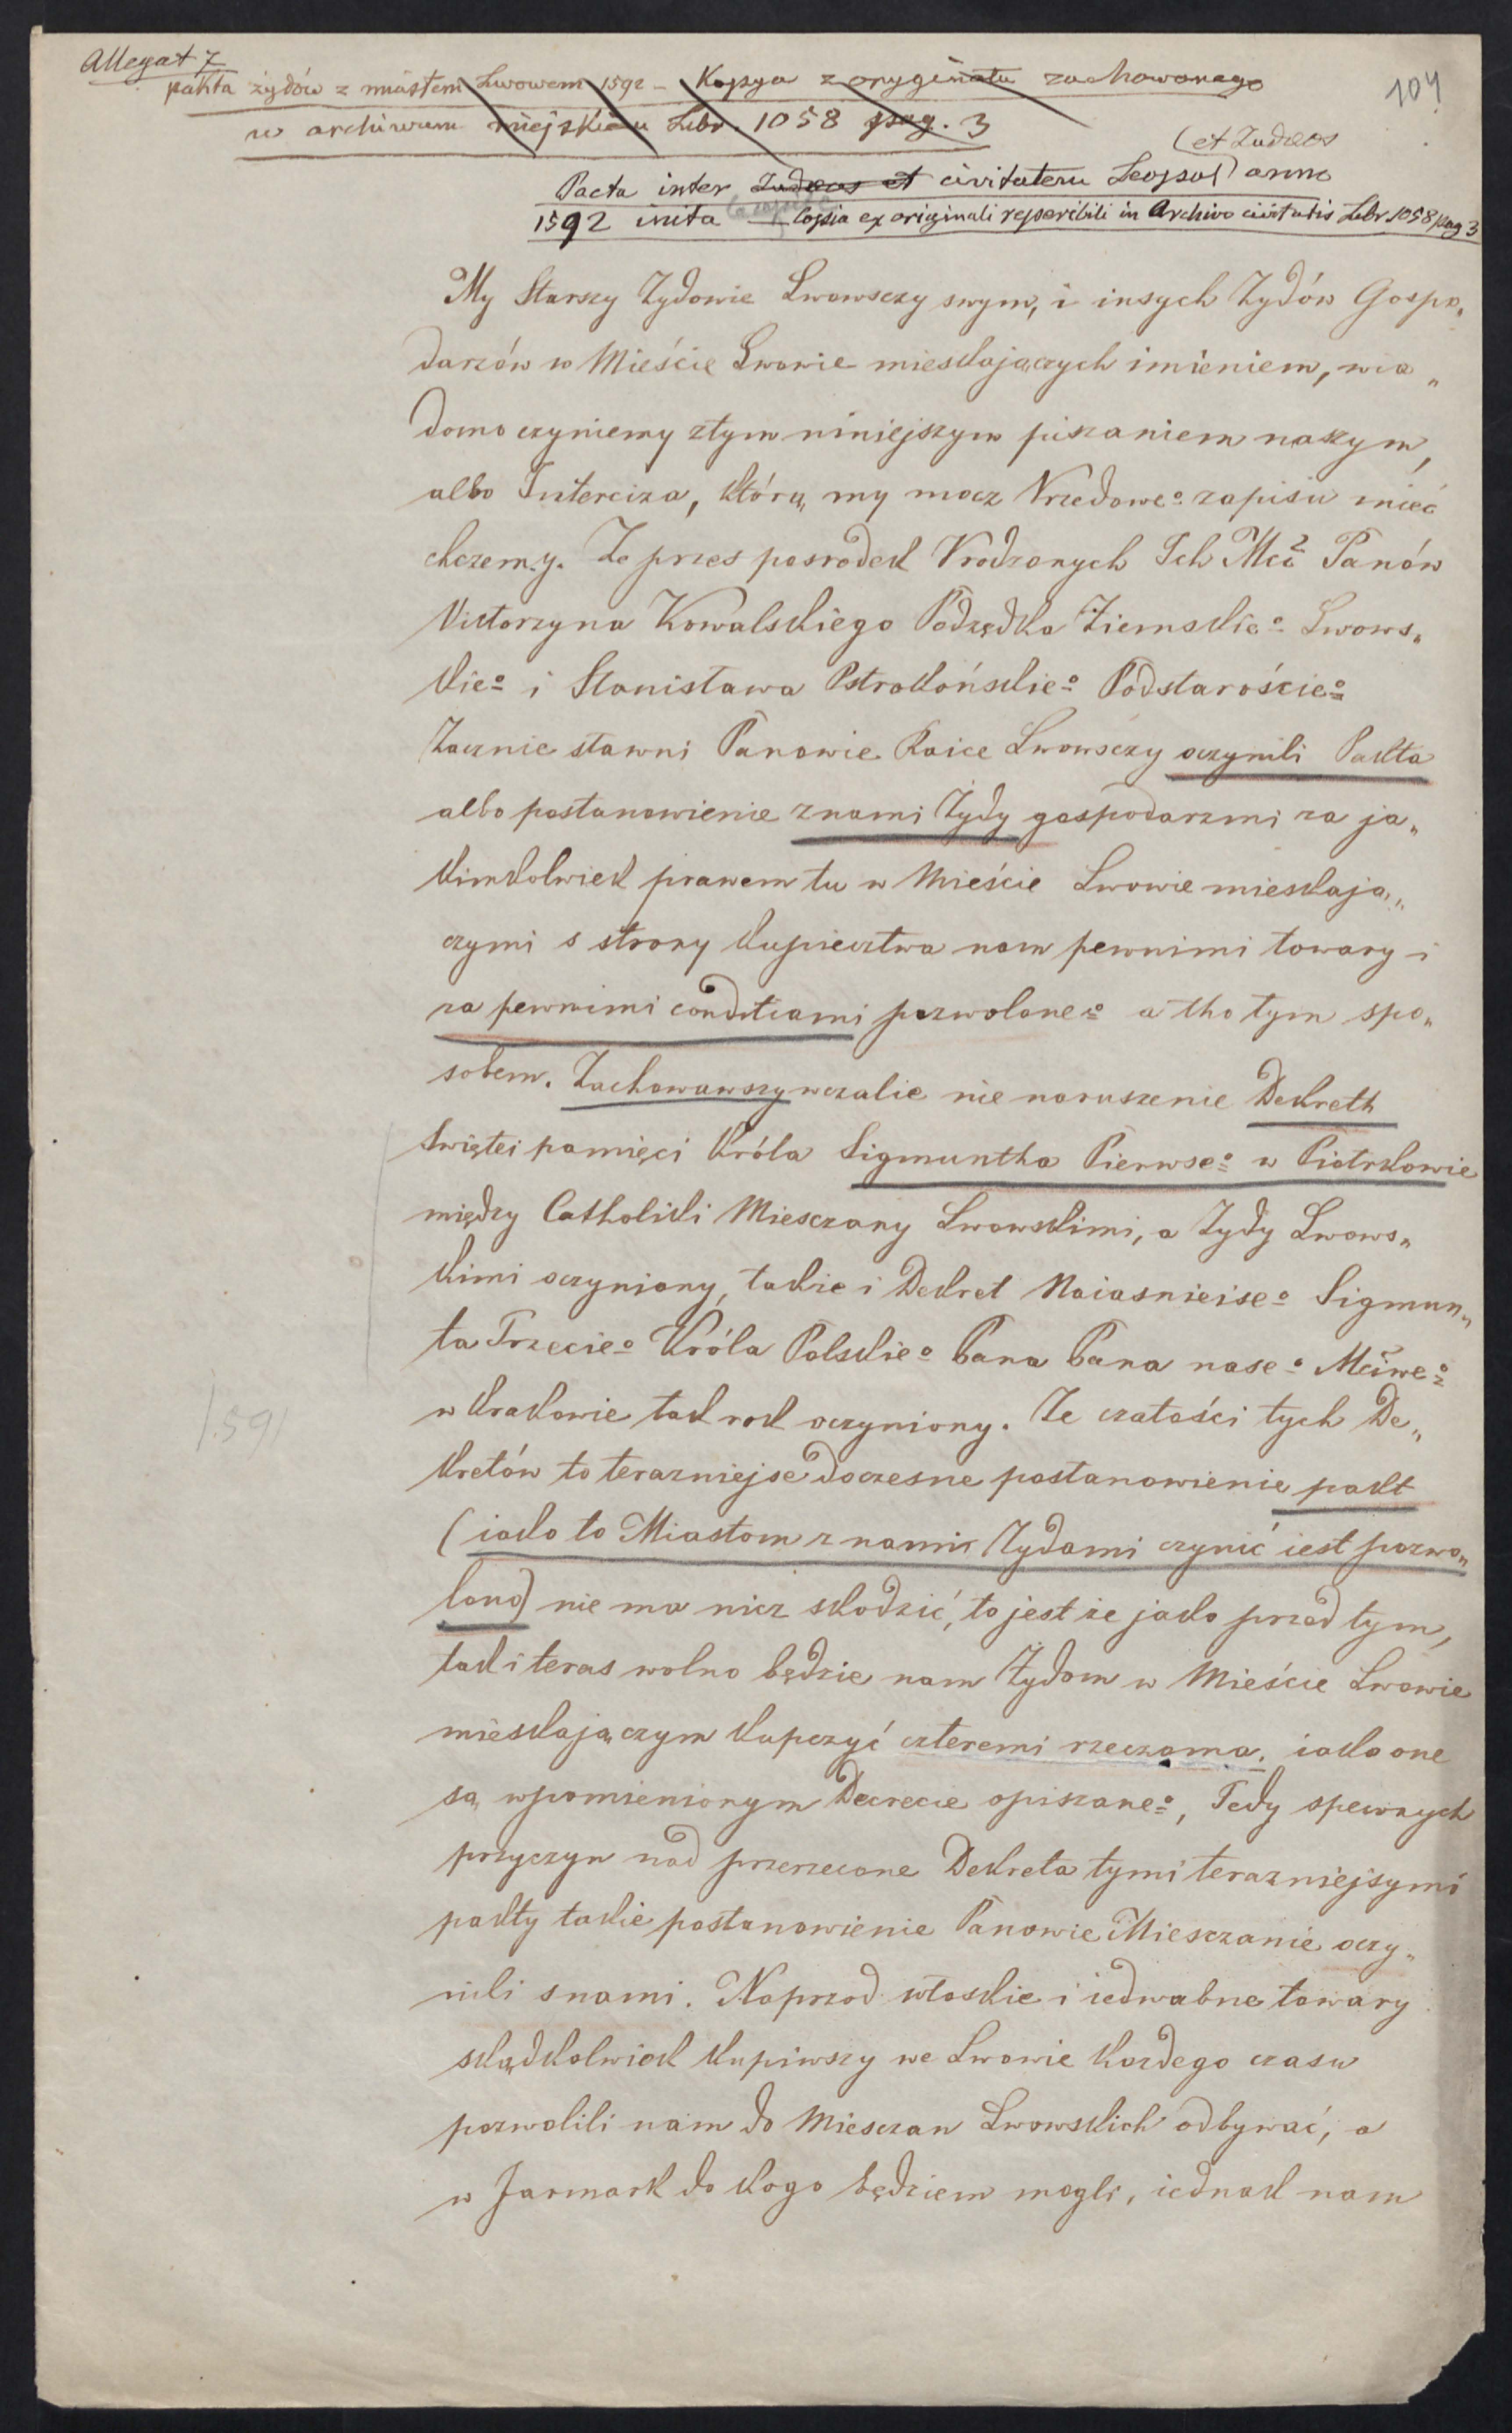 Allegat 7
104
pakta żydów z miastem Lwowem 1592 - Kopya z oryginału zachowanego
w archiwum miejskiem Lib. 1058 pag. 3
(et Judaeos
Pacta inter Judaeos et civitatem Leopol) anno
1592 inita Copia ex originali reperibili in Archivo civitatis Libr. 1058 pag 3
My Starszy Zydowie Lwowsczy swym, i insych Zydów Gospo„
darzów w Mieście Lwowie mieskajączych imieniem, wia„
domo czyniemy ztym niniejszym piszaniem naszym,
albo Intercizą, którą my mocz Vrzedowe⁰ zapisu mieć
chczemy. Ze przes posrodek Vrodzonych Ich Mci Panów
Victorzyna Kowalskiego Podsędka Ziemskie⁰ Lwows„
kie⁰ i Stanisława Pstrokońskie⁰ Podstaroście⁰
Zacznie sławni Panowie Raice Lwowsczy uczynili Pakta
albo postanowienie znami Żydy gospodarzmi za ja„
kimkolwiek prawem tu w Mieście Lwowie mieskają„
czymi s strony kupiecztwa nam pewnimi towary i
za pewnimi conditiami pozwolone⁰ a tho tym spo„
sobem. Zachowawszy wczalie nie naruszenie Dekreth
Swiętei pamięci Króla Sigmuntha Pierwse⁰ w Piotrkowie
między Catholiki Miesczany Lwowskimi, a Zydy Lwows„
kimi uczyniony, takie i Dekret Naiasnieise⁰ Sigmun„
ta Trzecie⁰ Króla Polskie⁰ Pana Pana nase⁰ Mciwe⁰
w Krakowie tak rok uczyniony. Ze czałości tych De„
1591
kretów to terazniejse doczesne postanowienie pakt
(iako to Miastom z nami Żydami czynić iest pozwo„
lono) nie ma nicz skodzić, to jest że jako przed tym,
tak i teras wolno będzie nam Żydom w Mieście Lwowie
mieskającczym kupczyć czteremi rzeczoma, iako one
są wpomienionym Decrecie opiszane⁰, Tedy spewnych
przyczyn nad przerzeczone Dekreta tymi terazniejsymi
pakty takie postanowienie Panowie Miesczanie uczy„
nili snami. Naprzod włoskie i iedwabne towary
skądkolwiek kupiwszy we Lwowie kozdego czasu
pozwolili nam do Miesczan Lwowskich odbywać, a
w Jarmark do kogo będziem mogli, iednak nam